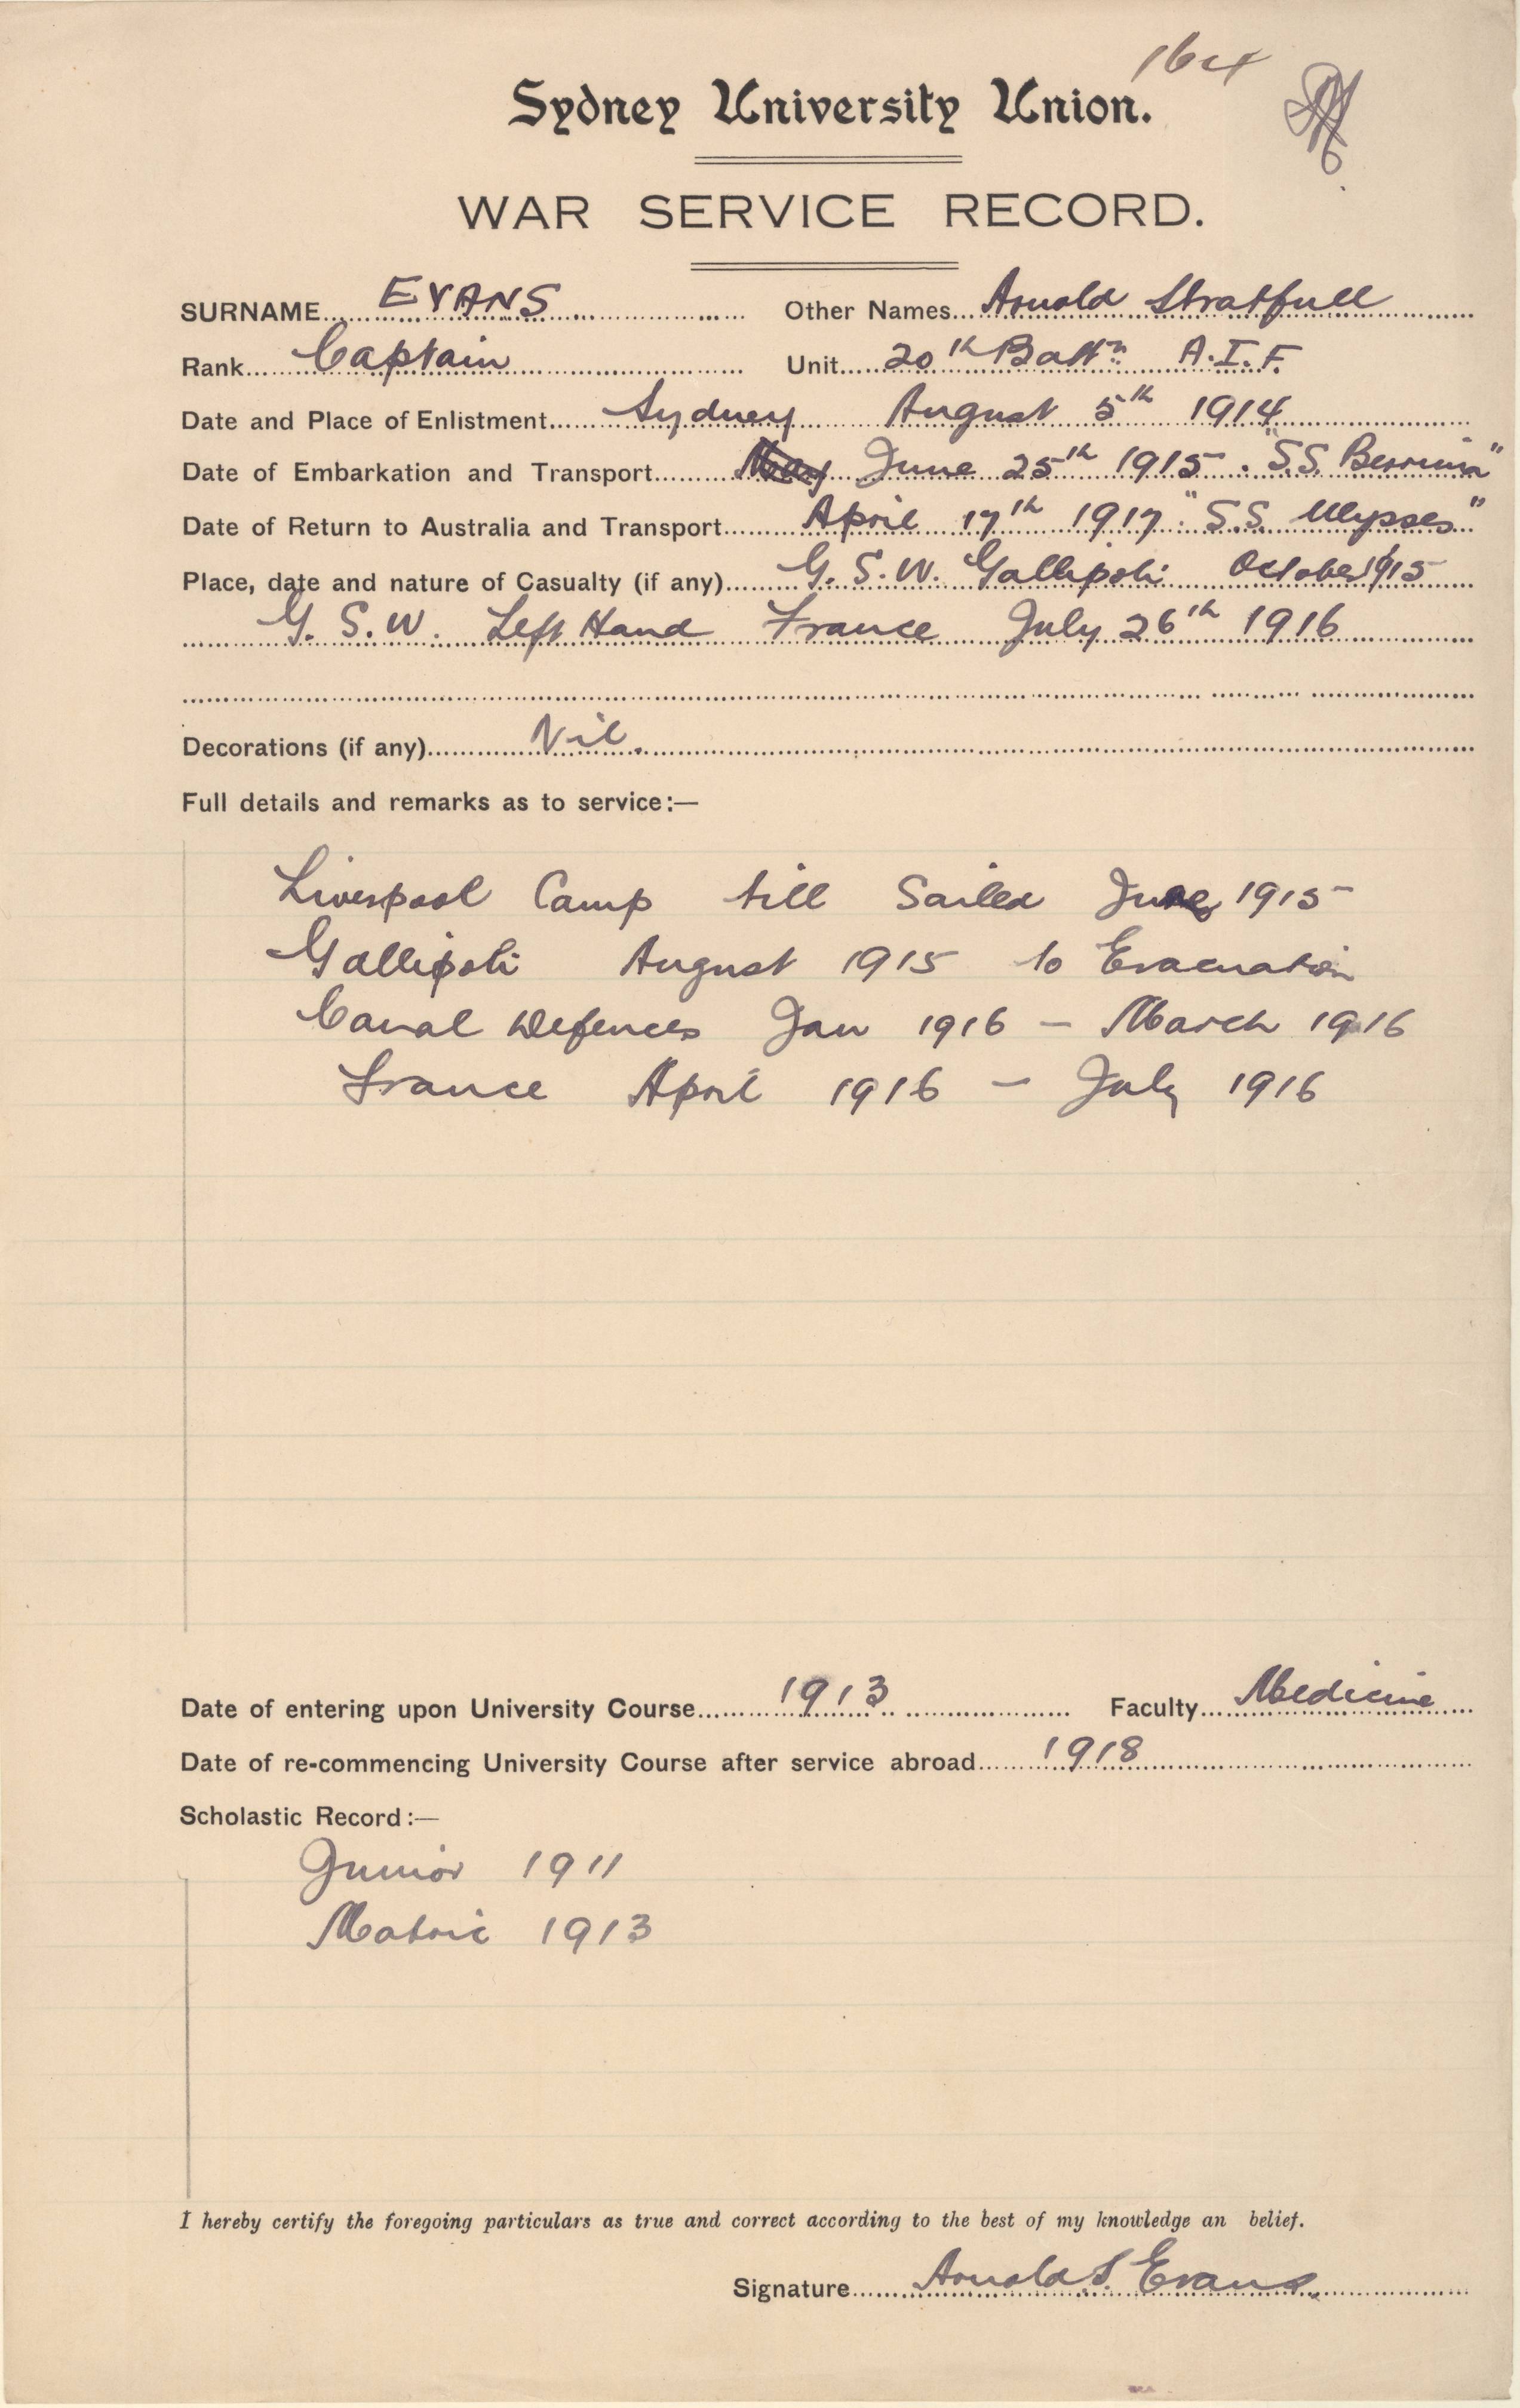 164
Sydney University Union.
WAR SERVICE RECORD.
SURNAME EVANS Other Names Arnold Stratfull
Rank Captain Unit 20th Battn A.I.F.
Date and Place of Enlistment Sydney August 5th 1914
Date of Embarkation and Transport May June 25th 1915. "S.S. Berrima"
Date of Return to Australia and Transport April 17th 1917 "S.S. Ulysses"
Place, date and nature of Casualty (if any) G.S.W. Gallipoli October 1915
G.S.W. Left Hand France July 26th 1916
Decorations (if any) Nil.
Full details and remarks as to service:—
Liverpool Camp till Sailed June 1915
Gallipoli August 1915 to Evacuation
Canal Defences Jan 1916 – March 1916
France April 1916 – July 1916
Date of entering upon University Course 1913 Faculty Medicine
Date of re-commencing University Course after service abroad 1918
Scholastic Record:—
Junior 1911
Matric 1913
I hereby certify the foregoing particulars as true and correct according to the best of my knowledge an belief.
Signature Arnold S. Evans